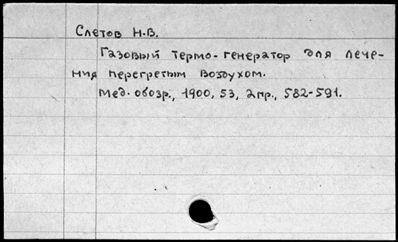 Слетов Н.В.
Газовый термо-генератор для лече-
ния перегретым воздухом.
Мед. обозр., 1900, 53, апр., 582-591.